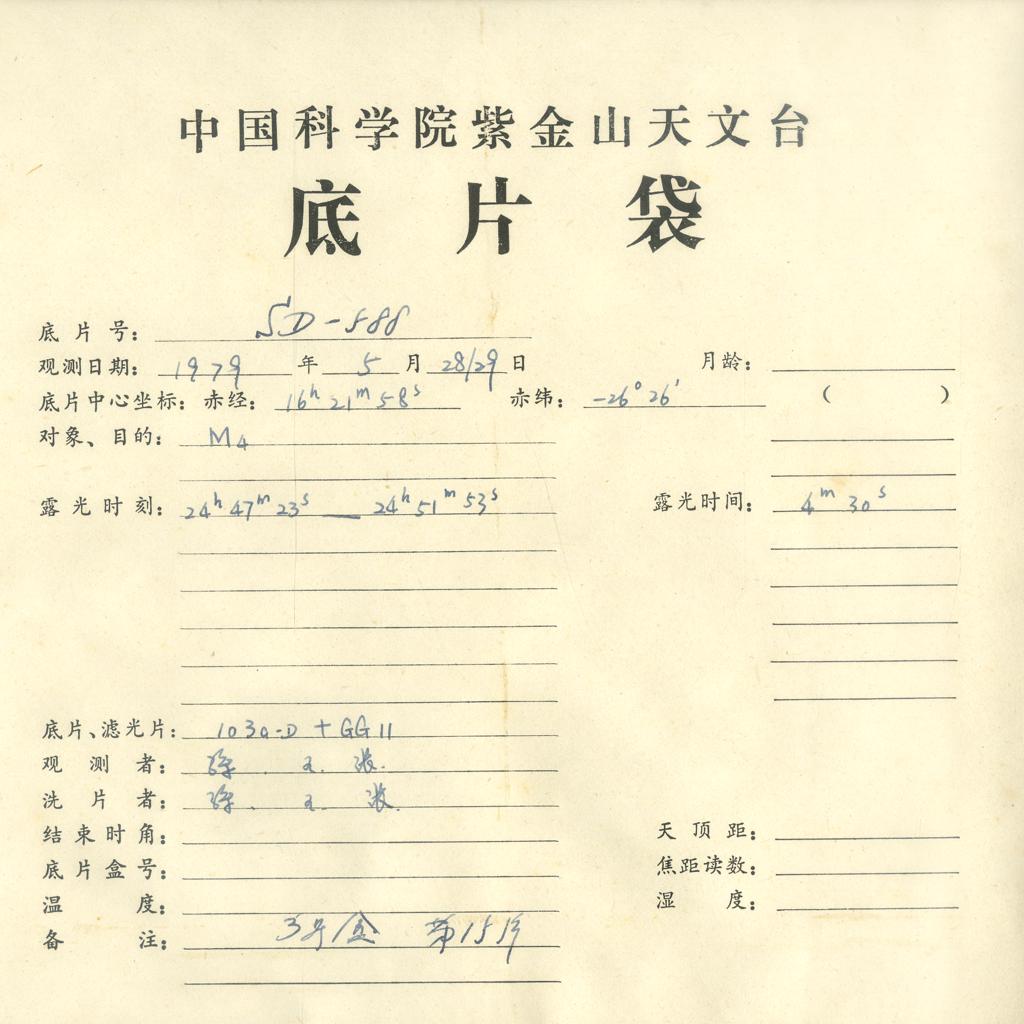 中国科学院紫金山天文台
底片袋
底片号： SD-588
观测日期： 1979 年 5 月 28/29 日 月龄：
底片中心坐标：赤经： 16h 21m 58s 赤纬： -26° 26′ ( )
对象、目的： M4
露光时刻： 24h 47m 23s — 24h 51m 53s 露光时间： 4m 30s
底片、滤光片： 103a-D + GG11
观测者： 徐. 王. 张.
洗片者： 徐. 王. 张.
结束时角： 天顶距：
底片盒号： 焦距读数：
温度： 湿度：
备注： 3号盒 第15片